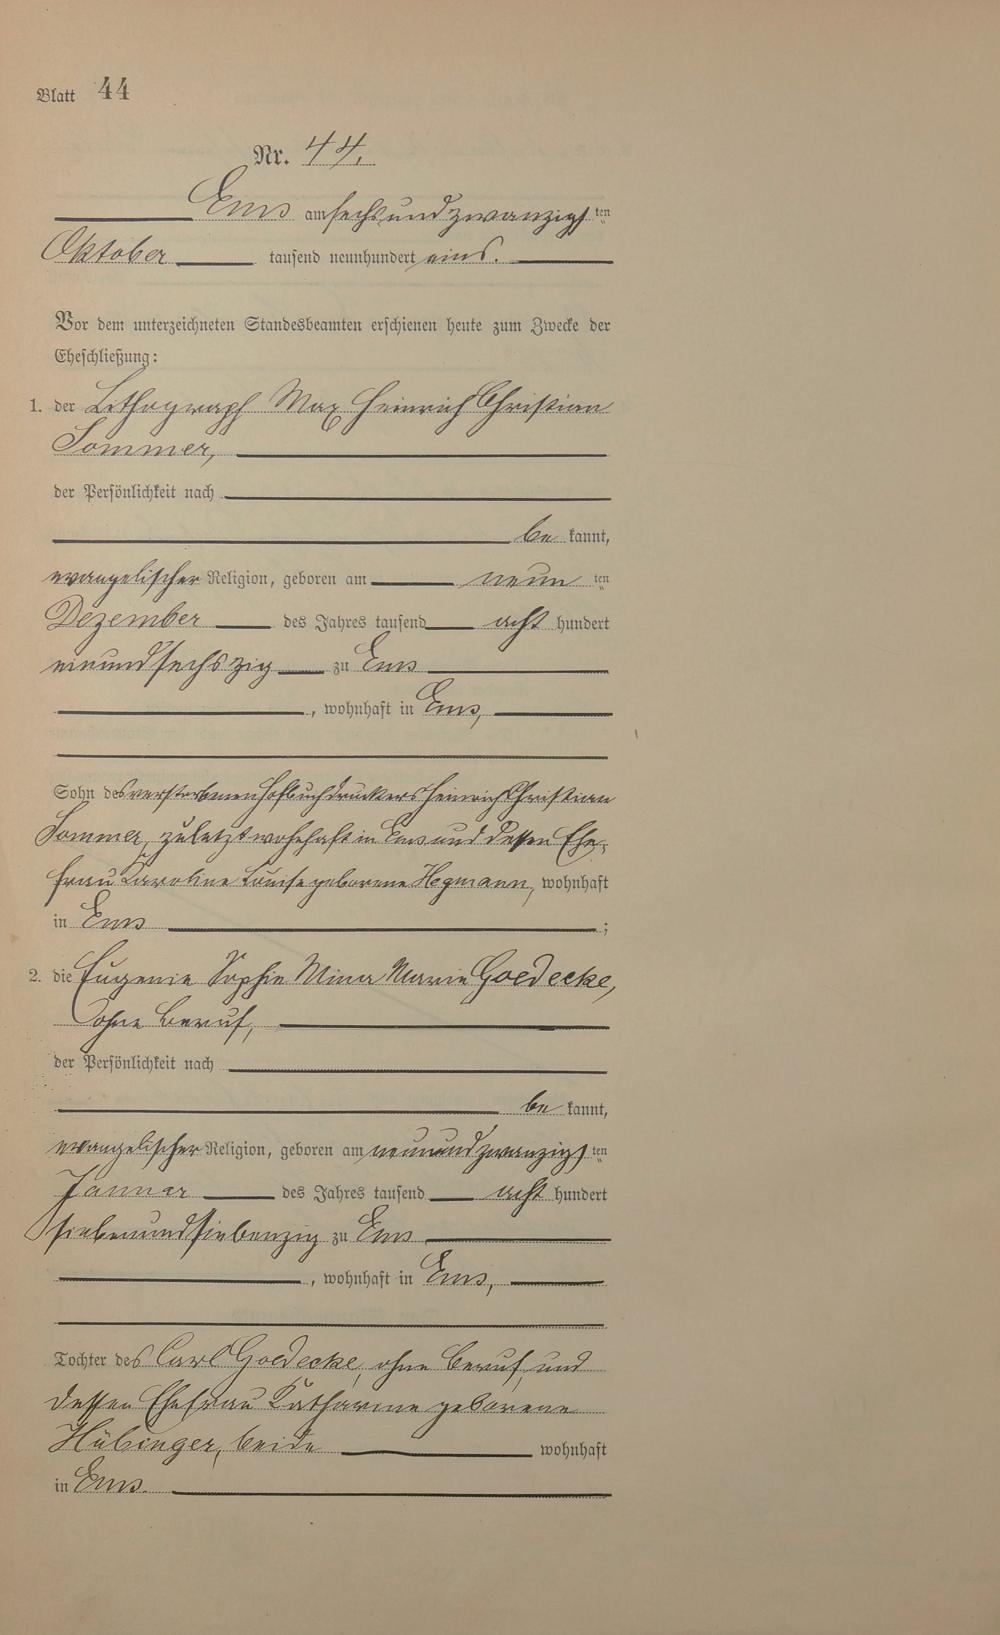 Blatt 44
Nr. 44.
Ems am sechsundzwanzigsten
Oktober tausend neunhundert eins.
Vor dem unterzeichneten Standesbeamten erschienen heute zum Zwecke der
Eheschließung:
1. der Lithograph Max Heinrich Christian
Sommer,
der Persönlichkeit nach
bekannt,
evangelischer Religion, geboren am neunten
Dezember des Jahres tausend acht hundert
einundsechszig zu Ems
, wohnhaft in Ems,
Sohn des verstorbenen Hofbuchdruckers Heinrich Christian
Sommer, zuletzt wohnhaft in Ems und dessen Ehe-
frau Karoline Louise geborene Hegmann, wohnhaft
in Ems ;
2. die Eugenie Sophie Mina Marie Goedecke,
ohne Beruf,
der Persönlichkeit nach
bekannt,
evangelischer Religion, geboren am neunundzwanzigsten
Januar des Jahres tausend acht hundert
siebenundsiebenzig zu Ems
, wohnhaft in Ems,
Tochter des Carl Goedecke, ohne Beruf, und
dessen Ehefrau Katharine geborene
Hübinger, beide wohnhaft
in Ems.